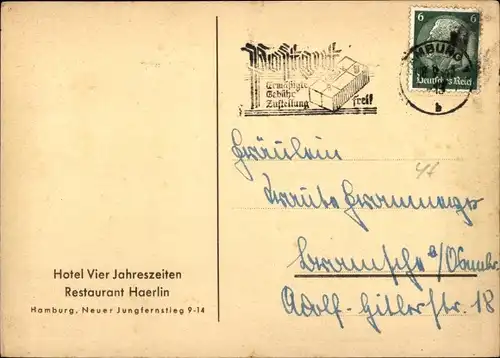 6 6
Deutsches Reich
MBURG
b
Postgut
Ermäßigte
Gebühr
Zustellung frei!
Fräulein
47
Traute
Bramsche b/Osnabr.
Adolf-Hitlerstr. 18
Hotel Vier Jahreszeiten
Restaurant Haerlin
Hamburg, Neuer Jungfernstieg 9-14